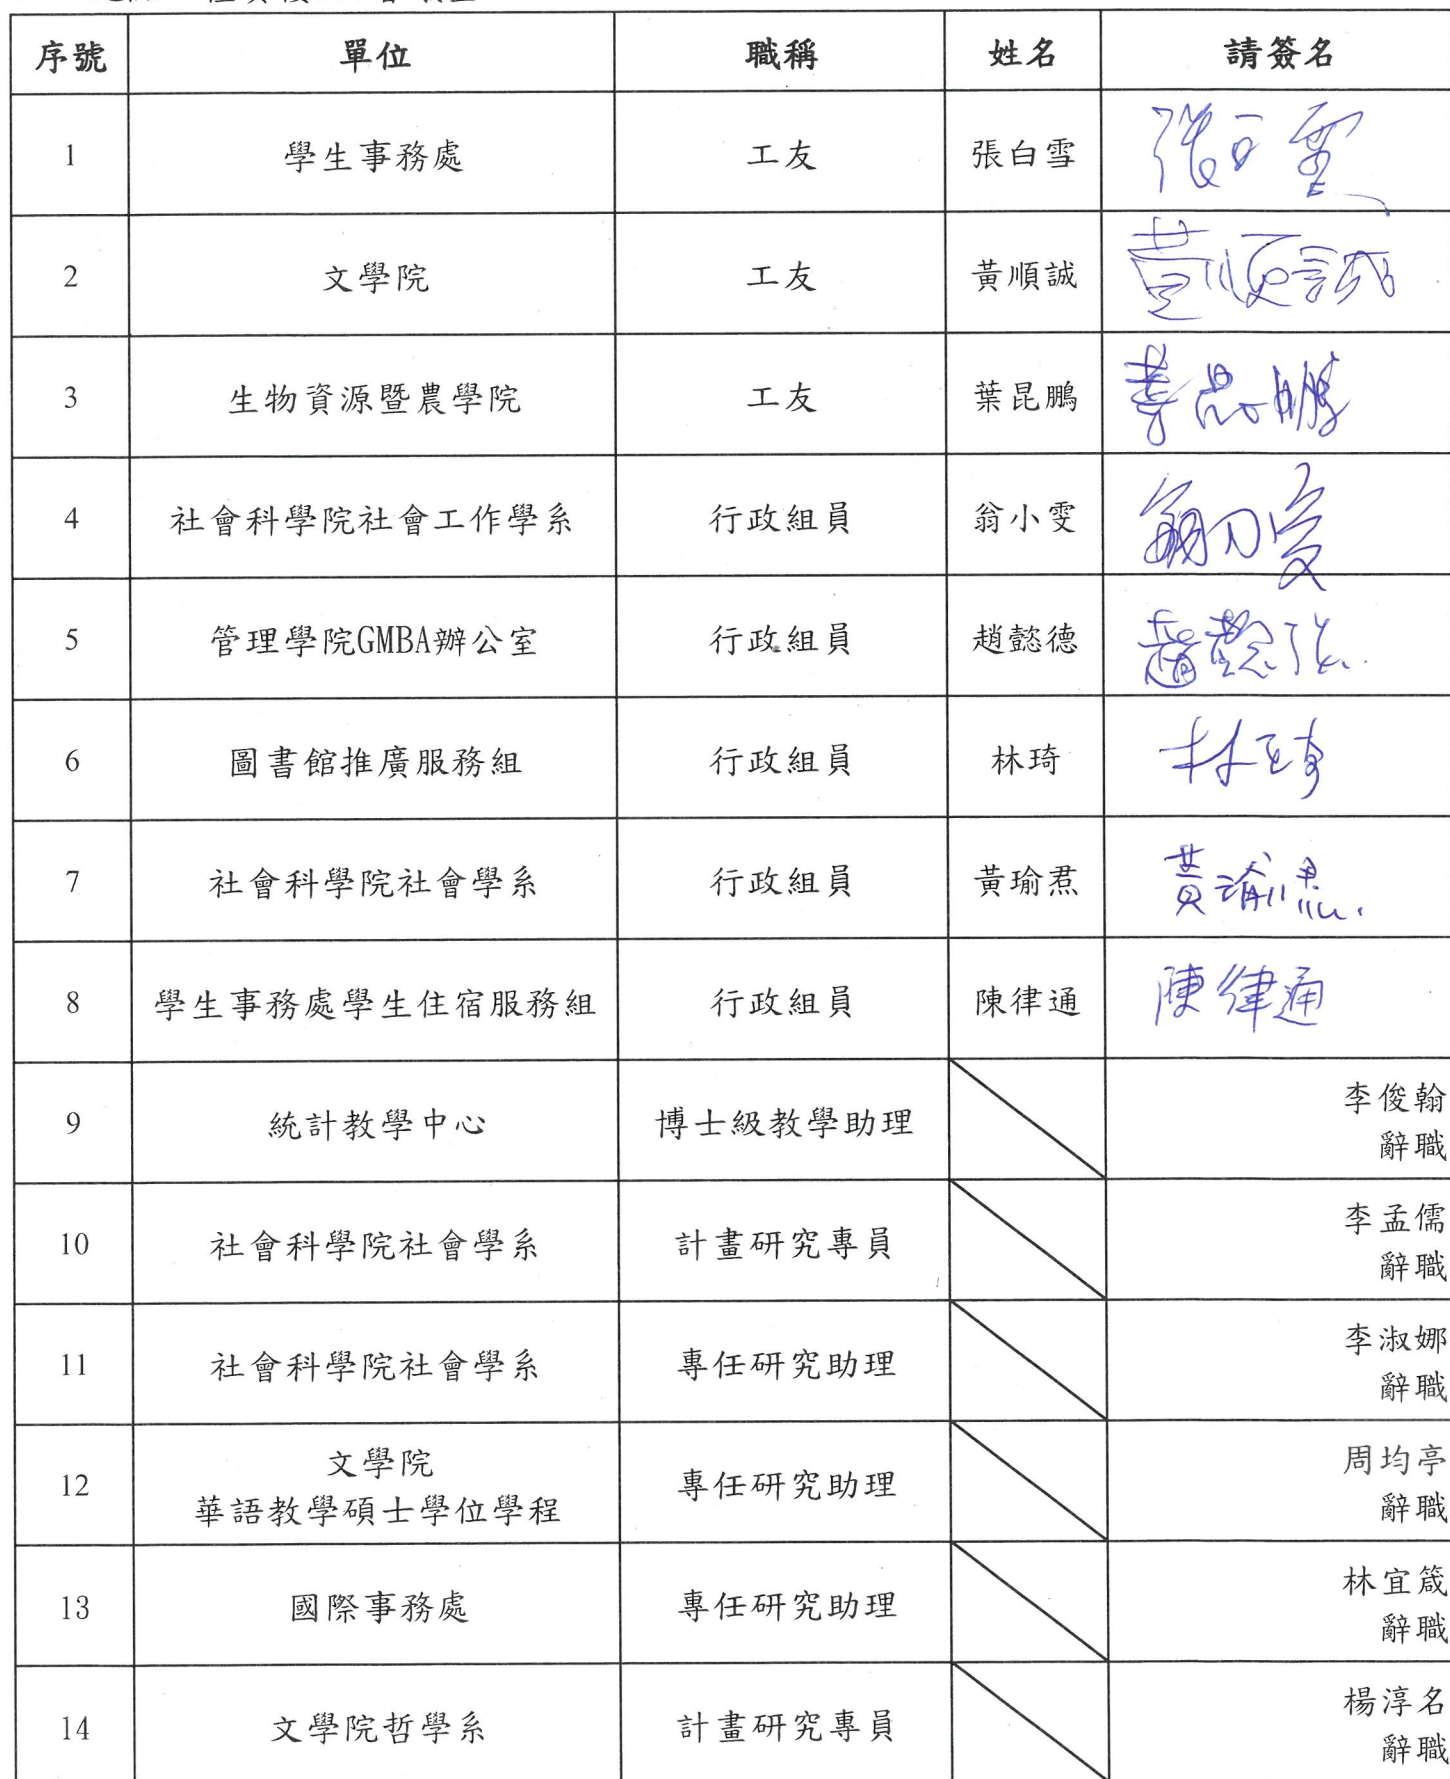 序號 單位 職稱 姓名 請簽名
1 學生事務處 工友 張白雪 張白雪
2 文學院 工友 黃順誠 黃順誠
3 生物資源暨農學院 工友 葉昆鵬 葉昆鵬
4 社會科學院社會工作學系 行政組員 翁小雯 翁小雯
5 管理學院GMBA辦公室 行政組員 趙懿德 趙懿德
6 圖書館推廣服務組 行政組員 林琦 林琦
7 社會科學院社會學系 行政組員 黃瑜焄 黃瑜焄
8 學生事務處學生住宿服務組 行政組員 陳律通 陳律通
9 統計教學中心 博士級教學助理 李俊翰
辭職
10 社會科學院社會學系 計畫研究專員 李孟儒
辭職
11 社會科學院社會學系 專任研究助理 李淑娜
辭職
12 文學院
華語教學碩士學位學程 專任研究助理 周均亭
辭職
13 國際事務處 專任研究助理 林宜箴
辭職
14 文學院哲學系 計畫研究專員 楊淳名
辭職